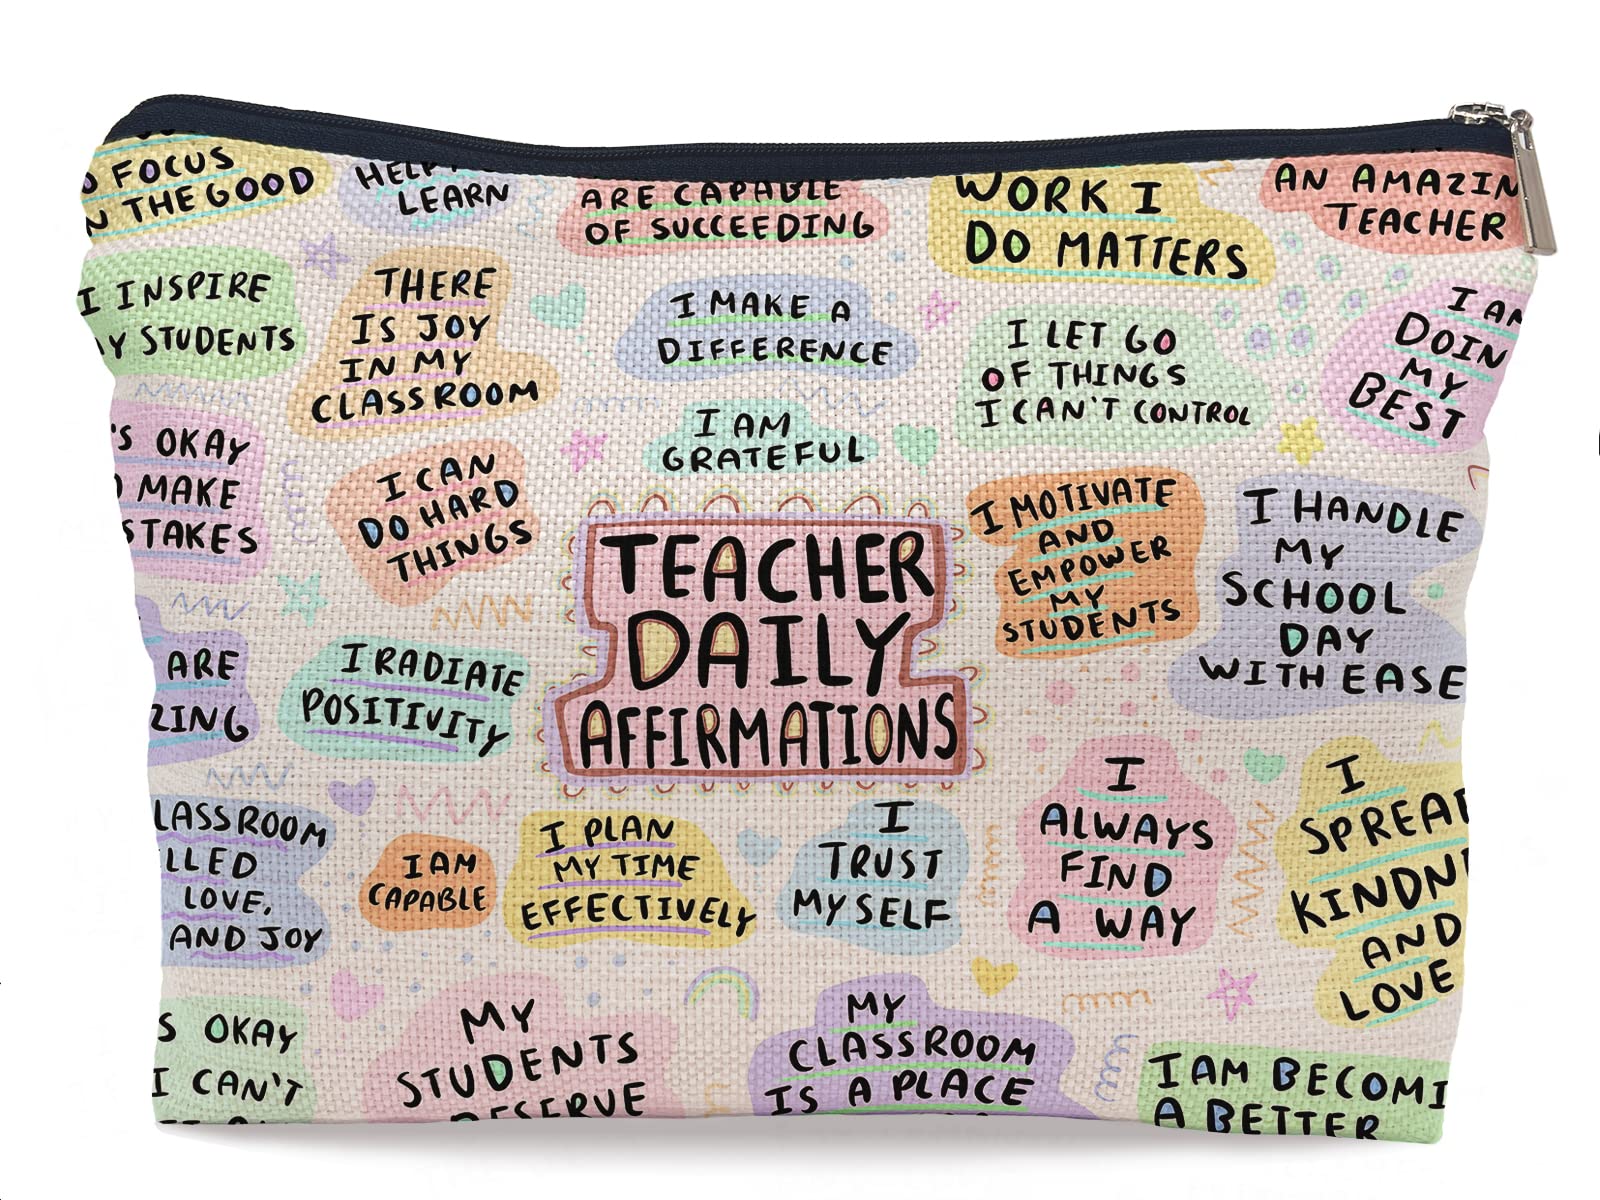 FOCUS
THE GOOD
LEARN
ARE CAPABLE
OF SUCCEEDING
WORK I
DO MATTERS
AN AMAZIN
TEACHER
I INSPIRE
Y STUDENTS
THERE
IS JOY
IN MY
CLASSROOM
I MAKE A
DIFFERENCE
I LET GO
OF THINGS
I CAN'T CONTROL
I AM
DOIN
MY
BEST
'S OKAY
MAKE
STAKES
I CAN
DO HARD
THINGS
I AM
GRATEFUL
TEACHER
DAILY
AFFIRMATIONS
I MOTIVATE
AND
EMPOWER
MY
STUDENTS
I HANDLE
MY
SCHOOL
DAY
WITH EASE
ARE
ZING
I RADIATE
POSITIVITY
LASSROOM
LLED
LOVE,
AND JOY
I AM
CAPABLE
I PLAN
MY TIME
EFFECTIVELY
I
TRUST
MYSELF
I
ALWAYS
FIND
A WAY
I
SPREAD
KINDN
AND
LOVE
S OKAY
I CAN'T
MY
STUDENTS
DESERVE
MY
CLASSROOM
IS A PLACE
I AM BECOMI
A BETTER